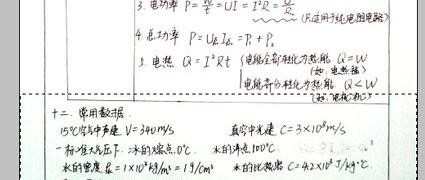 3. 电功率 P=W/t=UI=I²R=U²/R
(只适用于纯电阻电路)
4. 总功率 P=U总I总=P₁+P₂
5. 电热 Q=I²Rt {电能全部转化为热能 Q=W
(如:电热器)
电能部分转化为热能 Q<W
(如:电动机)
十二. 常用数据
15℃空气中声速 V=340m/s 真空中光速 C=3×10⁸m/s
一标准大气压下:冰的熔点:0℃ 水的沸点100℃
水的密度 ρ=1×10³kg/m³=1g/cm³ 水的比热容 C=4.2×10³J/kg·℃